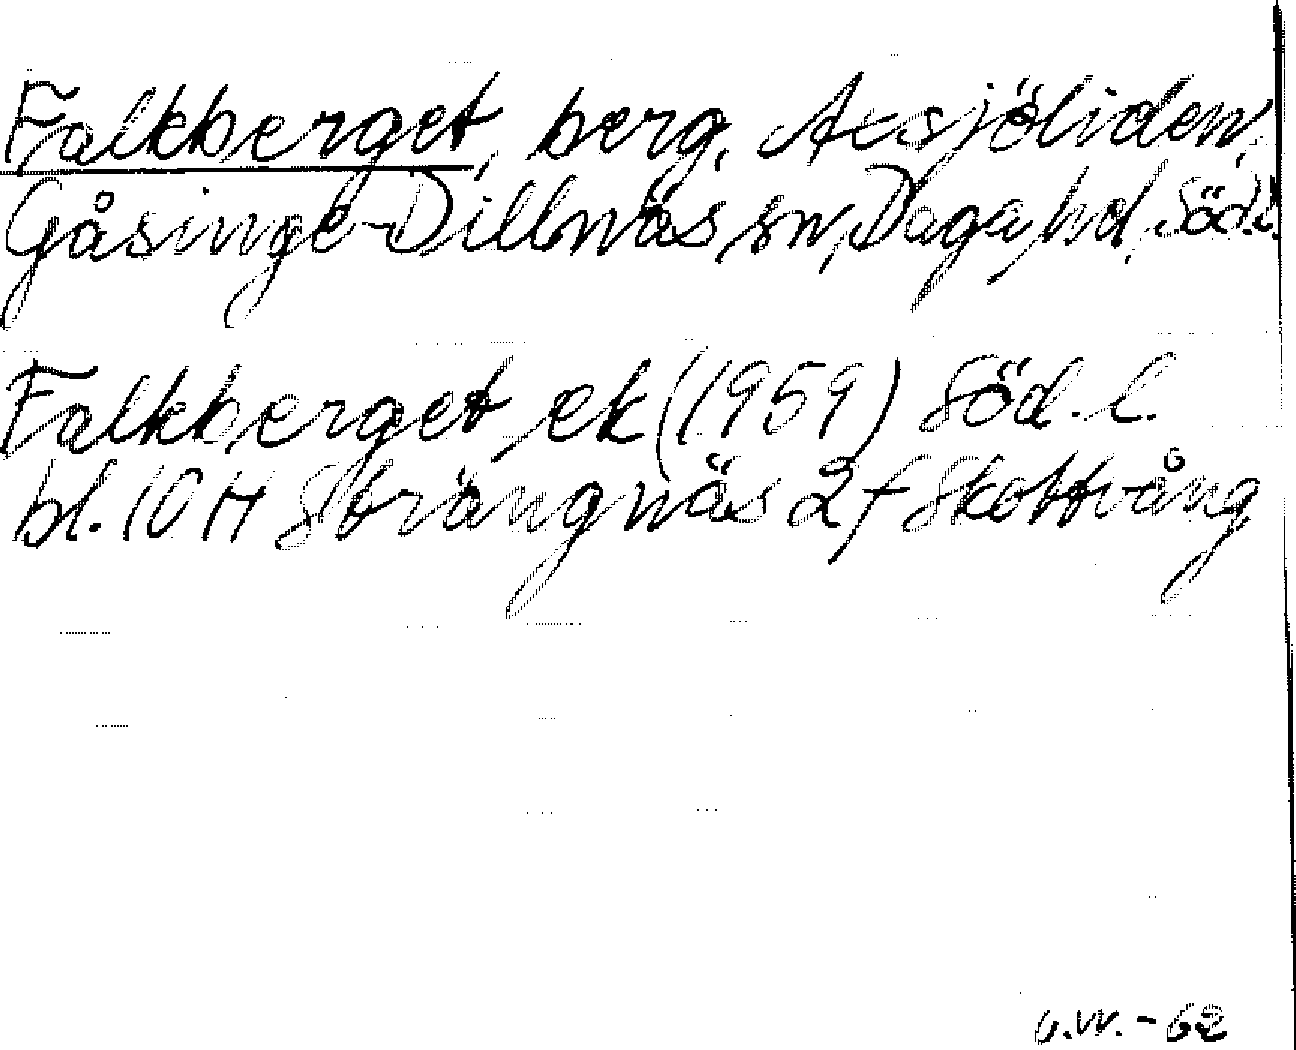 Falkberget, berg, Axsjöliden,
Gåsinge-Dillnäs sn, Daga hd, Söd.l.
Falkberget ek (1959) Söd. l.
bl. 10 H Strängnäs 2f Skottvång
G.W. - 62